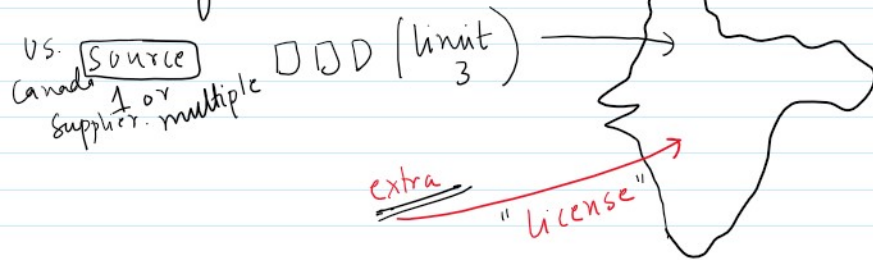 US.
Canada
Source
1 or multiple
Supplier.
(limit 3)
extra
"license"